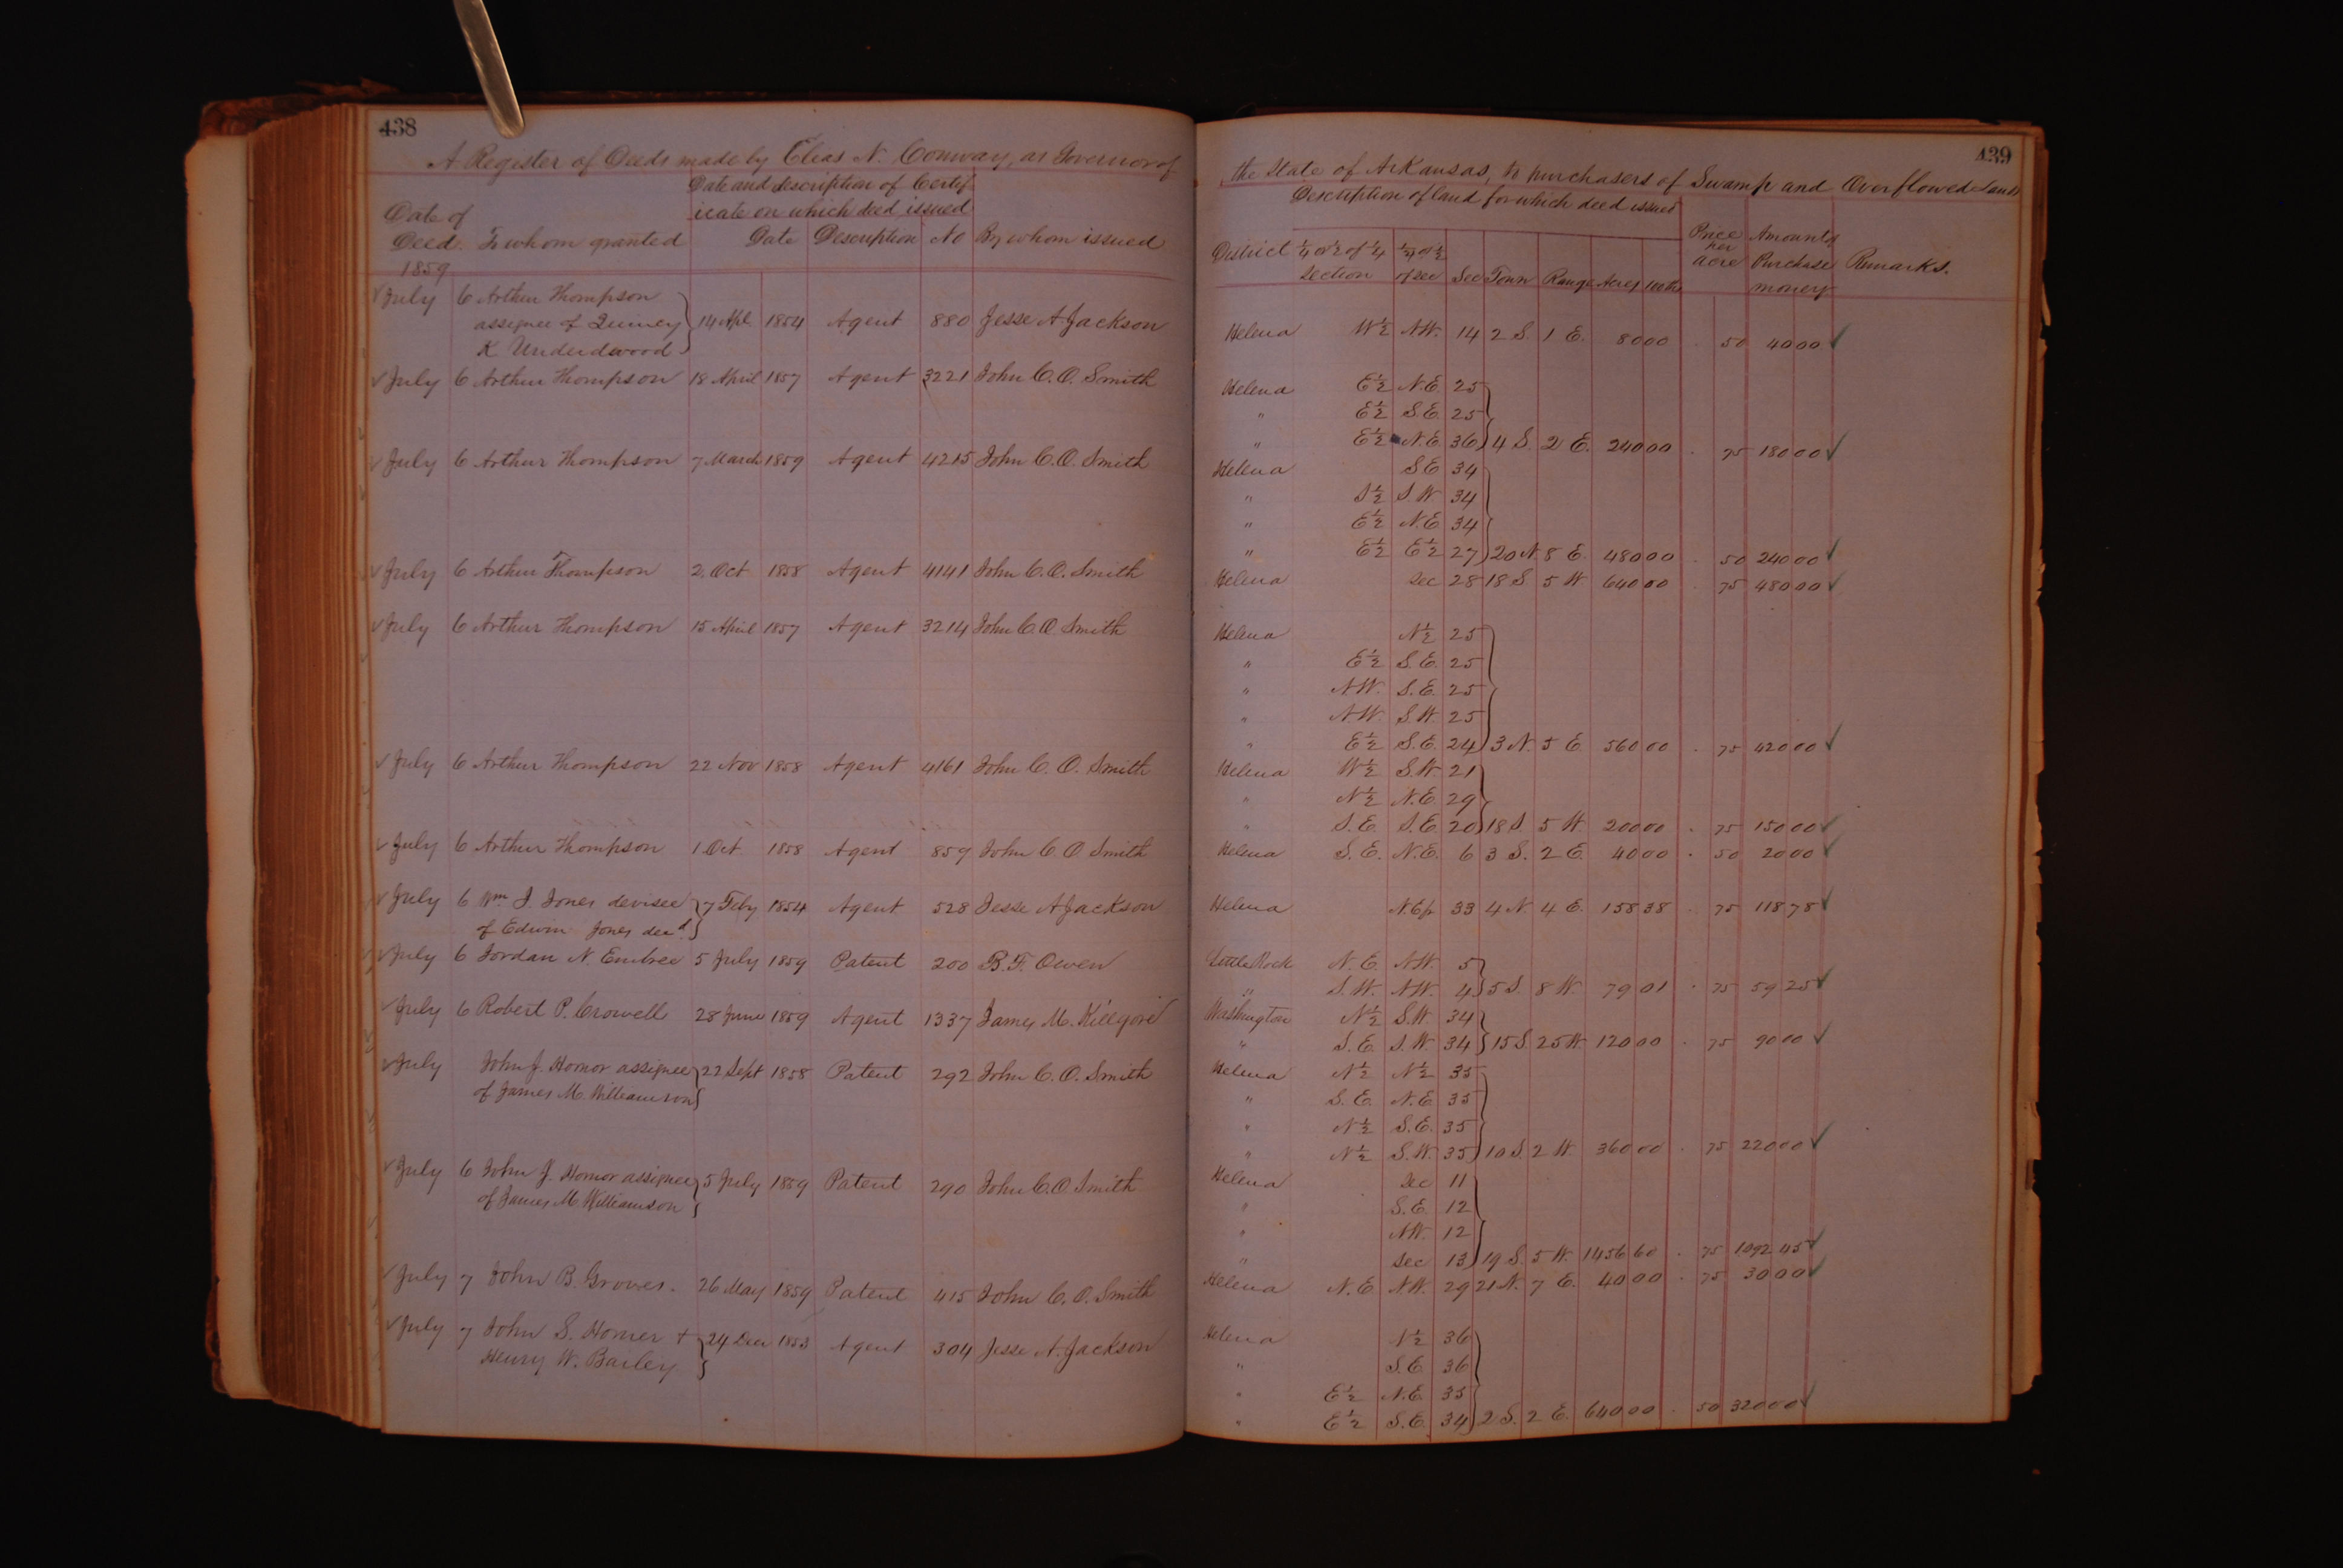 438
A Register of Deeds made by Elias N. Conway, as Governor of
Date and description of Certif
icate on which deed issued
Date of
Deed To whom granted Date Description No By whom issued
1859
July 6 Arthur Thompson
assignee of Quincy 14 Apl 1854 Agent 880 Jesse A Jackson
K Underdwood
July 6 Arthur Thompson 18 April 1857 Agent 3221 John C. O. Smith
July 6 Arthur Thompson 7 March 1859 Agent 4215 John C. O. Smith
July 6 Arthur Thompson 2. Oct 1858 Agent 4141 John C. O. Smith
July 6 Arthur Thompson 15 April 1857 Agent 3214 John C. O. Smith
July 6 Arthur Thompson 22 Nov 1858 Agent 4161 John C. O. Smith
July 6 Arthur Thompson 1 Oct 1858 Agent 859 John C. O. Smith
July 6 Wm J. Jones devisee 7 Feby 1854 Agent 528 Jesse A Jackson
of Edwin Jones decd.
July 6 Jordan N. Embree 5 July 1859 Patent 200 B. F. Owen
July 6 Robert P. Crowell 28 June 1859 Agent 1337 James M. Killgore
July John J. Homor assignee 22 Sept 1858 Patent 292 John C. O. Smith
of James M. Williamson
July 6 John J. Homor assignee 5 July 1859 Patent 290 John C. O Smith
of James M. Williamson
July 7 John B. Groves. 26 May 1859 Patent 415 John C. O. Smith
July 7 John S. Horner + 24 Decr 1853 Agent 304 Jesse A. Jackson
Henry W. Bailey
439
the State of Arkansas, to purchasers of Swamp and Overflowed Lands
Description of land for which deed issued
District ¼ or ½ of ¼ ¼ or ½ Price Amount of
per
Section of sec Sec Town Range Acres 100ths acre Purchase Remarks.
money
Helena W½ N.W. 14 2 S. 1 E. 80 00 . 50 40 00 ✓
Helena E½ N.E. 25
" E½ S.E. 25
" E½ N.E. 36 4 S. 2 E. 240 00 . 75 180 00 ✓
Helena S.E 34
" S½ S.W. 34
" E½ N.E 34
" E½ E½ 27 20 N. 8 E. 480 00 . 50 240 00 ✓
Helena Sec 28 18 S 5 W 640 00 . 75 480 00 ✓
Helena N½ 25
" E½ S.E. 25
" N.W. S.E. 25
" N.W. S.W. 25
" E½ S.E. 24 3 N. 5 E 560 00 . 75 420 00 ✓
Helena W½ S.W. 21
" N½ N.E. 29
" S.E. S.E. 20 18 S. 5 W. 200 00 . 75 150 00 ✓
Helena S.E. N.E. 6 3 S. 2 E. 40 00 . 50 20 00 ✓
Helena N.E fr 33 4 N. 4 E. 158 38 . 75 118 78 ✓
Little Rock N. E. N.W. 5
" S. W. N.W. 4 5 S. 8 W. 79 01 . 75 59 25 ✓
Washington N½ S.W. 34
" S. E. S.W. 34 15 S. 25 W. 120 00 . 75 90 00 ✓
Helena N½ N½ 35
" S. E. N.E 35
" N½ S.E. 35
" N½ S.W. 35 10 S. 2 W. 360 00 . 75 220 00 ✓
Helena Sec 11
" S.E. 12
" N.W. 12
" Sec 13 19 S. 5 W. 1456 60 . 75 1092 45 ✓
Helena N. E N.W. 29 21 N. 7 E. 40 00 . 75 30 00 ✓
Helena N½ 36
" S.E. 36
" E½ N.E. 35
" E½ S.E. 34 2 S. 2 E. 640 00 . 50 320 00 ✓